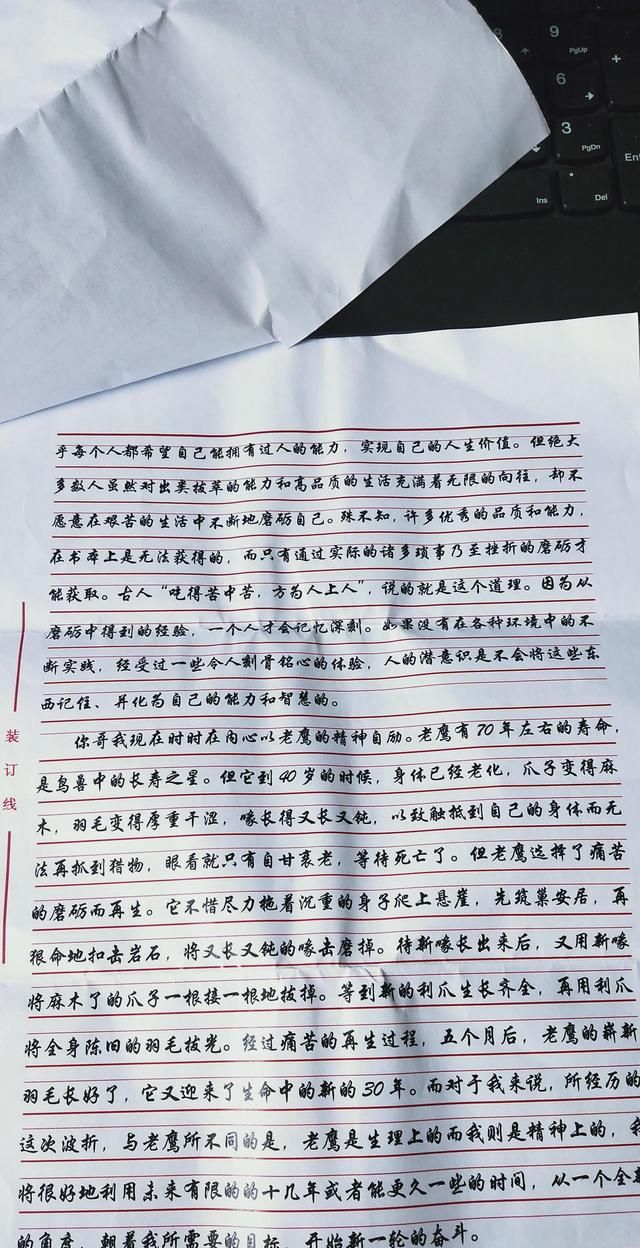 8
9
PgUp
+
6
3
PgDn
En
Ins
.
Del
乎每个人都希望自己能拥有过人的能力，实现自己的人生价值。但绝大
多数人虽然对出类拔萃的能力和高品质的生活充满着无限的向往，却不
愿意在艰苦的生活中不断地磨砺自己。殊不知，许多优秀的品质和能力，
在书本上是无法获得的，而只有通过实际的诸多琐事乃至挫折的磨砺才
能获取。古人“吃得苦中苦，方为人上人”，说的就是这个道理。因为从
磨砺中得到的经验，一个人才会记忆深刻。如果没有在各种环境中的不
断实践，经受过一些令人刻骨铭心的体验，人的潜意识是不会将这些东
西记住、并化为自己的能力和智慧的。
你哥我现在时时在内心以老鹰的精神自励。老鹰有70年左右的寿命，
是鸟兽中的长寿之星。但它到40岁的时候，身体已经老化，爪子变得麻
木，羽毛变得厚重干涩，喙长得又长又钝，以致触抵到自己的身体而无
法再抓到猎物，眼看就只有自甘衰老，等待死亡了。但老鹰选择了痛苦
的磨砺而再生。它不惜尽力拖着沉重的身子爬上悬崖，先筑巢安居，再
狠命地扣击岩石，将又长又钝的喙击磨掉。待新喙长出来后，又用新喙
将麻木了的爪子一根接一根地拔掉。等到新的利爪生长齐全，再用利爪
将全身陈旧的羽毛拔光。经过痛苦的再生过程，五个月后，老鹰的崭新
羽毛长好了，它又迎来了生命中的新的30年。而对于我来说，所经历的
这次波折，与老鹰所不同的是，老鹰是生理上的而我则是精神上的，我
将很好地利用未来有限的的十几年或者能更久一些的时间，从一个全新
的角度，朝着我所需要的目标，开始新一轮的奋斗。
装订线